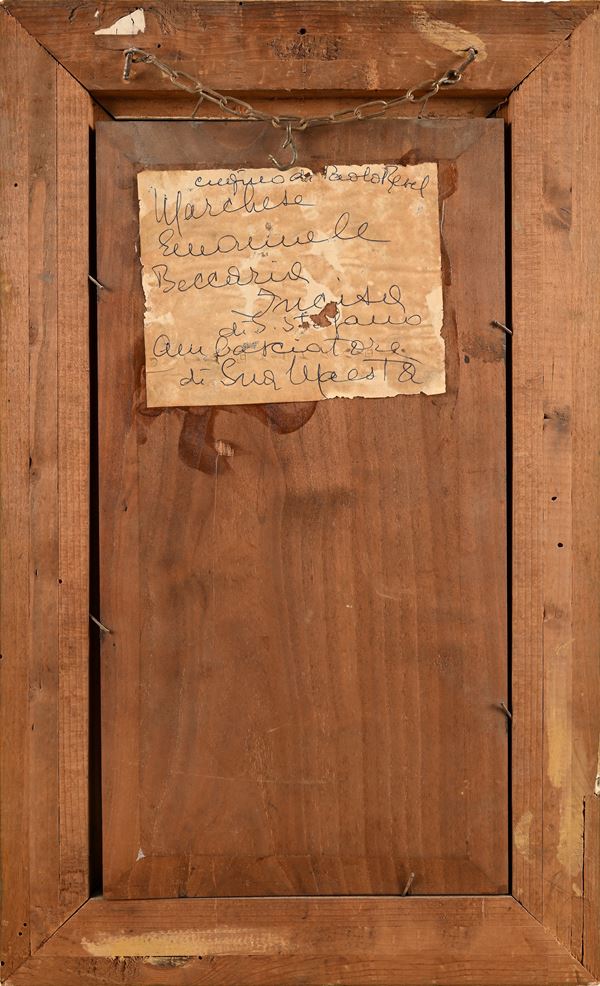 cugino di Paolo
Marchese
Emanuele
Beccaria
Incisa
di S. Stefano
Ambasciatore
di Sua Maestà